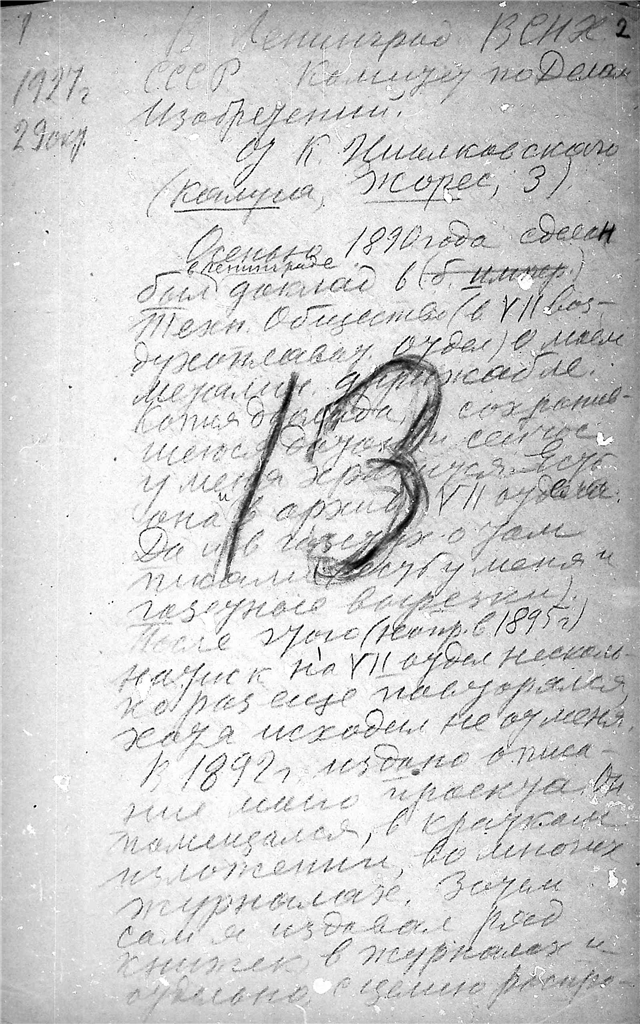 1
2
В Ленинград ВСНХ
1927г СССР Комитету по Делам
29 окт. Изобретений.
от К. Циолковского
(Калуга, Жорес, 3)
Осенью 1890 года сделан
в Ленинграде
был доклад в (б. импер.)
Техн. Обществе (в VII воз-
духоплават. отдел) о моем
металлич. дирижабле.
Копия доклада, сохранив-
шегося и сейчас
у меня хранится. Есть
она и в архиве VII отдела.
Да и в газетах о том
писали (есть у меня и
газетные вырезки).
После этого (напр. в 1895г)
натиск на VII отдел несколь-
ко раз еще повторялся,
хотя исходил не от меня.
В 1892г. издано описа-
ние моего проекта. Он
помещался, в кратком
изложении, во многих
журналах. Затем
сам я издавал ряд
книжек в журналах и
отдельно с целью распро-
13